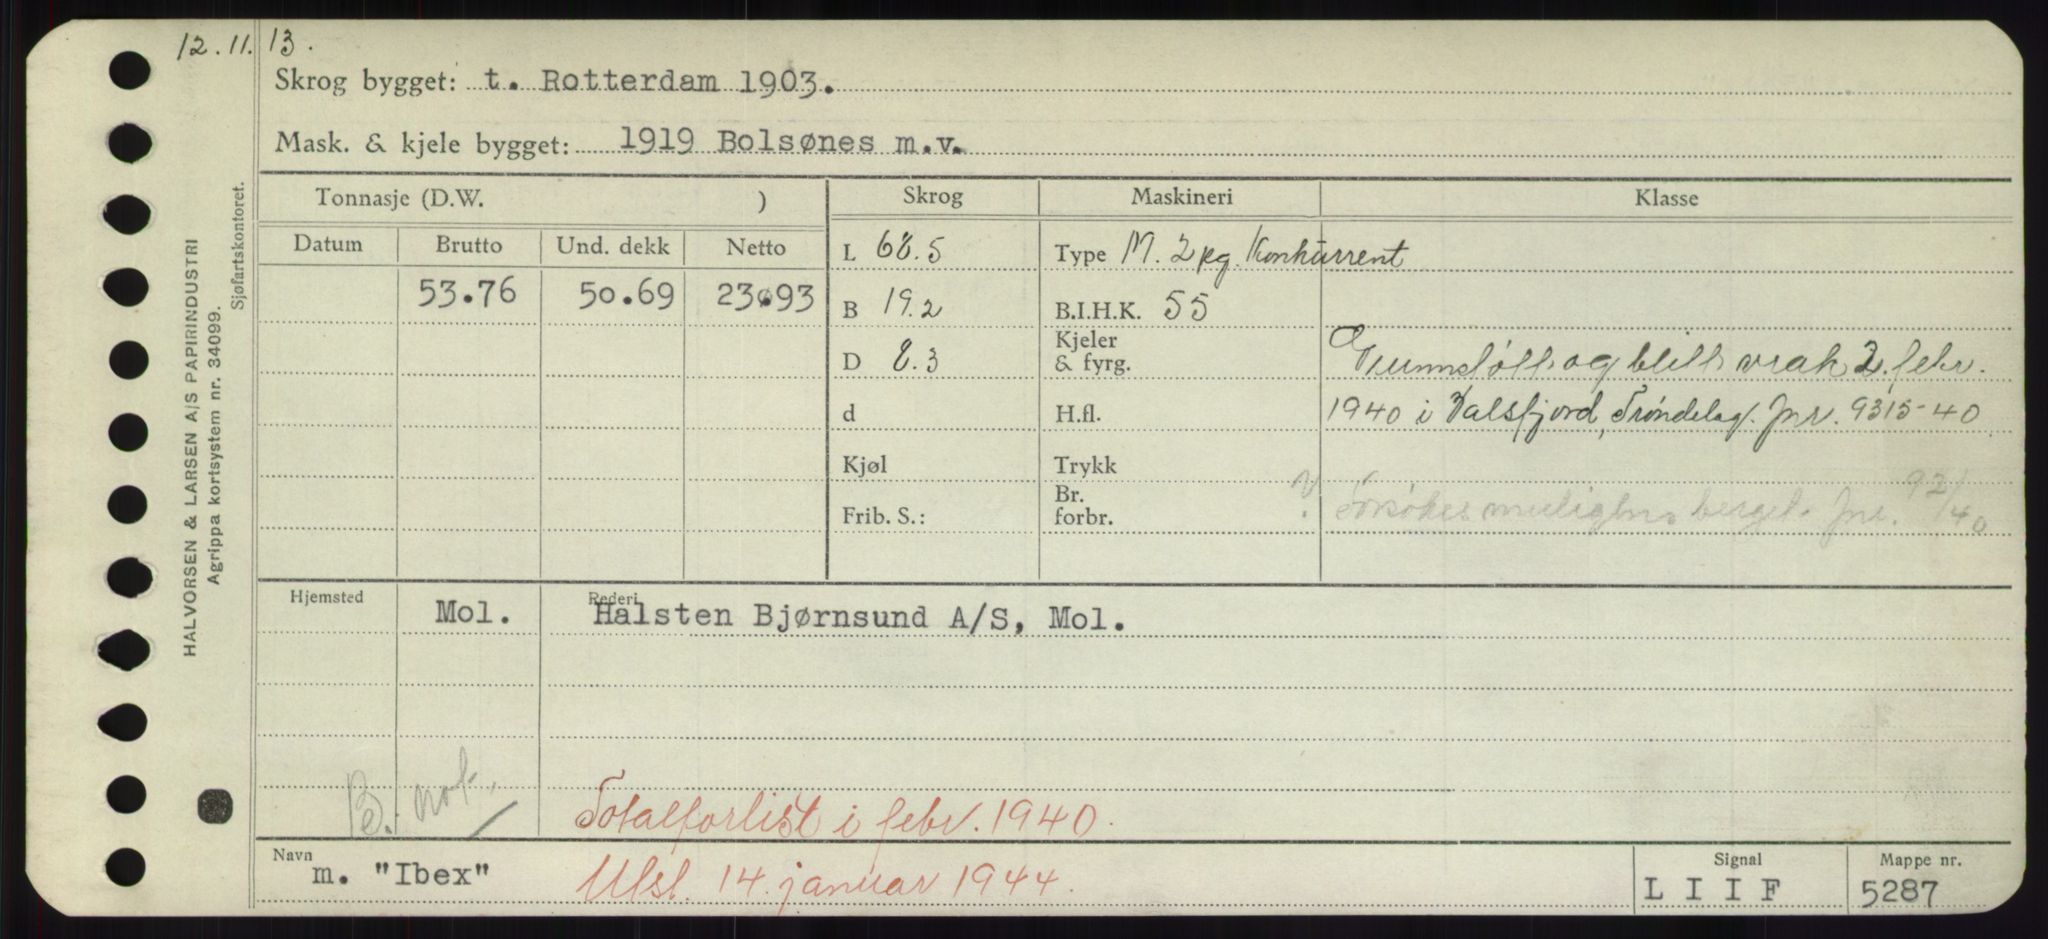 12.11.13.
Skrog bygget: t. Rotterdam 1903.
Mask. & kjele bygget: 1919 Bolsønes m.v.
Tonnasje (D.W. ) Skrog Maskineri Klasse
Datum Brutto Und. dekk Netto
53.76 50.69 23.93
L 68.5
B 19.2
D 8.3
d
Kjøl
Frib. S.:
Type M. 2 pg. Konkurrent
B.I.H.K. 55
Kjeler
& fyrg.
H.fl.
Trykk
Br.
forbr.
Grunnstött og blitt vrak 2. febr.
1940 i Valsfjord, Tröndelag. Jnr. 9315-40
? Forsökes muligens berget. Jnr. 92/40
Hjemsted Rederi
Mol. Halsten Bjørnsund A/S, Mol.
B. not.
Totalforlist i febr. 1940.
Navn m. "Ibex"
Utsl. 14. januar 1944.
Signal
L I I F
Mappe nr.
5287
HALVORSEN & LARSEN A/S PAPIRINDUSTRI
Agrippa kortsystem nr. 34099.
Sjøfartskontoret.